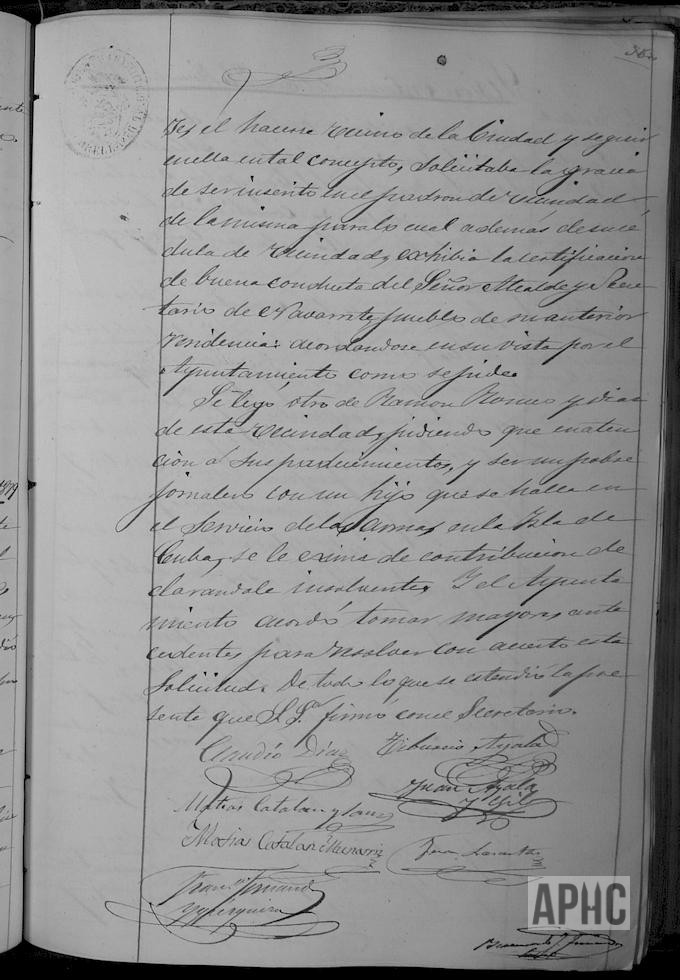 36.
res el hacerse vecino de la Ciudad y seguir
en ella en tal concepto, solicitaba la gracia
de ser inscrito en el padron de vecindad,
de la misma para lo cual además de su ce
dula de vecindad, exhibia la certificacion
de buena conducta del Señor Alcalde y Secre
tario de Navarrete, pueblo de su anterior
residencia: acordandose en su vista por el
Ayuntamiento como se pide.
Se leyó otro de Ramon Romeo y Diaz
de esta vecindad, pidiendo que en aten
cion á sus padecimientos, y ser un pobre
jornalero con un hijo que se halla en
el servicio de las armas en la Isla de
Cuba, se le exima de contribucion de
clarándole insolvente. Y el Ayunta
miento acordó tomar mayores ante
cedentes para resolver con acierto esta
Solicitud. De todo lo que se estendió la pre
sente que S. Sª firmó con el Secretario.
Claudio Diaz Tiburcio Ayala
Juan Ayala
y Gil
Matias Catalan y Sanz
Matias Catalan
Juan
APHC